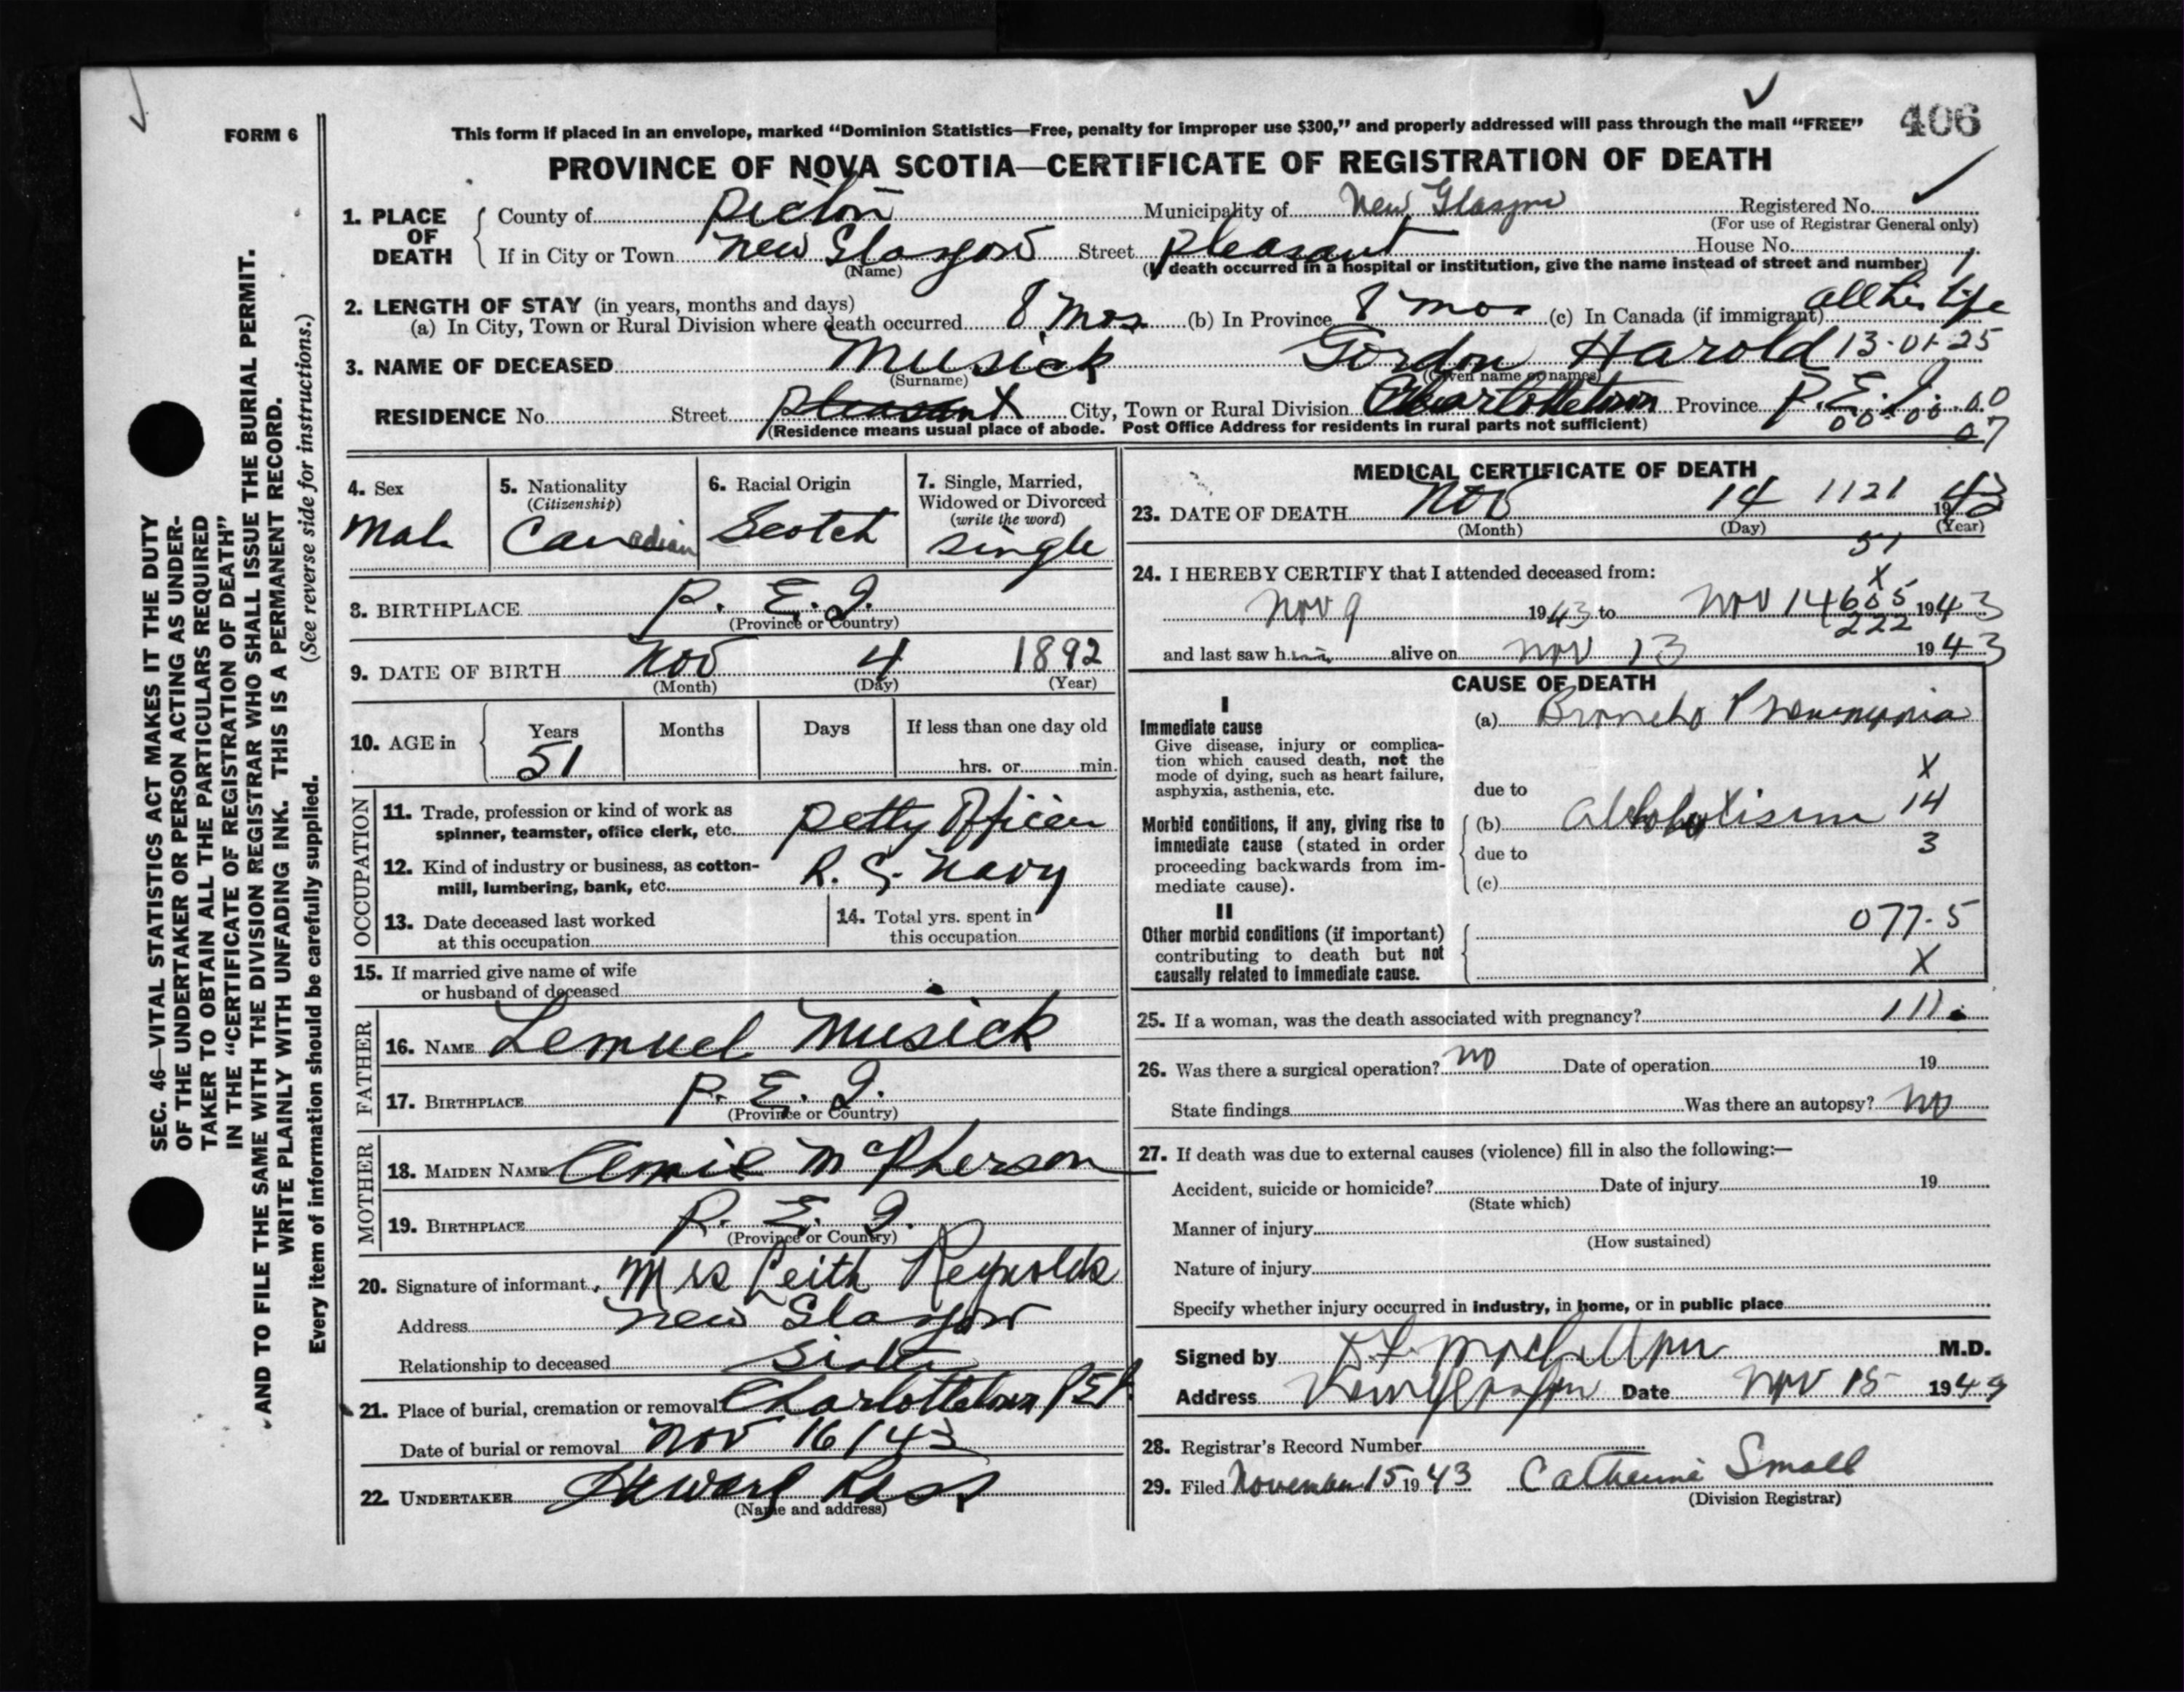 406
FORM 6
This form if placed in an envelope, marked “Dominion Statistics—Free, penalty for improper use $300,” and properly addressed will pass through the mail “FREE”
PROVINCE OF NOVA SCOTIA—CERTIFICATE OF REGISTRATION OF DEATH
1. PLACE OF DEATH
County of Pictou Municipality of New Glasgow Registered No.
(For use of Registrar General only)
If in City or Town New Glasgow Street Pleasant House No.
(Name) (If death occurred in a hospital or institution, give the name instead of street and number)
2. LENGTH OF STAY (in years, months and days)
(a) In City, Town or Rural Division where death occurred 8 Mos. (b) In Province 8 mos (c) In Canada (if immigrant) all his life
3. NAME OF DECEASED Musick Gordon Harold 13-01-25
(Surname) (Given name or names)
RESIDENCE No. Street Pleasant City, Town or Rural Division Charlottetown Province P.E.I.
00-00-00
07
(Residence means usual place of abode. Post Office Address for residents in rural parts not sufficient)
4. Sex
Male
5. Nationality
(Citizenship)
Canadian
6. Racial Origin
Scotch
7. Single, Married, Widowed or Divorced
(write the word)
Single
8. BIRTHPLACE P. E. I.
(Province or Country)
9. DATE OF BIRTH Nov 4 1892
(Month) (Day) (Year)
10. AGE in Years Months Days If less than one day old
51 hrs. or min.
OCCUPATION
11. Trade, profession or kind of work as
spinner, teamster, office clerk, etc. Petty Officer
12. Kind of industry or business, as cotton-
mill, lumbering, bank, etc. Navy
13. Date deceased last worked
at this occupation
14. Total yrs. spent in
this occupation
15. If married give name of wife
or husband of deceased
FATHER
16. NAME Lemuel Musick
17. BIRTHPLACE P. E. I.
(Province or Country)
MOTHER
18. MAIDEN NAME Annie McPherson
19. BIRTHPLACE P. E. I.
(Province or Country)
20. Signature of informant Mrs Leith Reynolds
Address New Glasgow
Relationship to deceased Sister
21. Place of burial, cremation or removal Charlottetown PEI
Date of burial or removal Nov 16/43
22. UNDERTAKER
(Name and address)
MEDICAL CERTIFICATE OF DEATH
23. DATE OF DEATH Nov 14 1121 1943
(Month) (Day) (Year)
51
24. I HEREBY CERTIFY that I attended deceased from:
X
Nov 9 1943 to Nov 14 1943
222
and last saw him alive on Nov 13 1943
CAUSE OF DEATH
I
Immediate cause
Give disease, injury or complica-
tion which caused death, not the
mode of dying, such as heart failure,
asphyxia, asthenia, etc.
(a) Broncho Pneumonia
X
due to
14
Morbid conditions, if any, giving rise to
immediate cause (stated in order
proceeding backwards from im-
mediate cause).
(b) Alcoholism
3
due to
(c)
II
Other morbid conditions (if important)
contributing to death but not
causally related to immediate cause.
077-5
X
25. If a woman, was the death associated with pregnancy? 111
26. Was there a surgical operation? no Date of operation 19
State findings Was there an autopsy? no
27. If death was due to external causes (violence) fill in also the following:—
Accident, suicide or homicide? Date of injury 19
(State which)
Manner of injury
(How sustained)
Nature of injury
Specify whether injury occurred in industry, in home, or in public place
Signed by M.D.
Address New Glasgow Date Nov 15 1943
28. Registrar's Record Number
29. Filed November 15 1943 Catherine Small
(Division Registrar)
SEC. 46—VITAL STATISTICS ACT MAKES IT THE DUTY
OF THE UNDERTAKER OR PERSON ACTING AS UNDER-
TAKER TO OBTAIN ALL THE PARTICULARS REQUIRED
IN THE “CERTIFICATE OF REGISTRATION OF DEATH”
AND TO FILE THE SAME WITH THE DIVISION REGISTRAR WHO SHALL ISSUE THE BURIAL PERMIT.
WRITE PLAINLY WITH UNFADING INK. THIS IS A PERMANENT RECORD.
Every item of information should be carefully supplied. (See reverse side for instructions.)